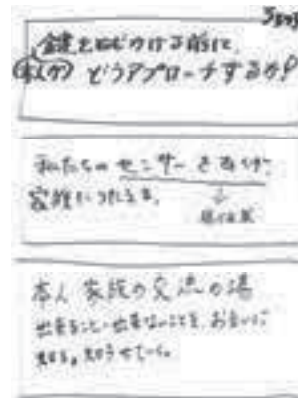 鍵をはずける前に
本人が どうアプローチするか?
私たちの センサーを
家族に
本人 家族の交流の場
出来ること・出来ないことを お互いに
知る。知らせていく。